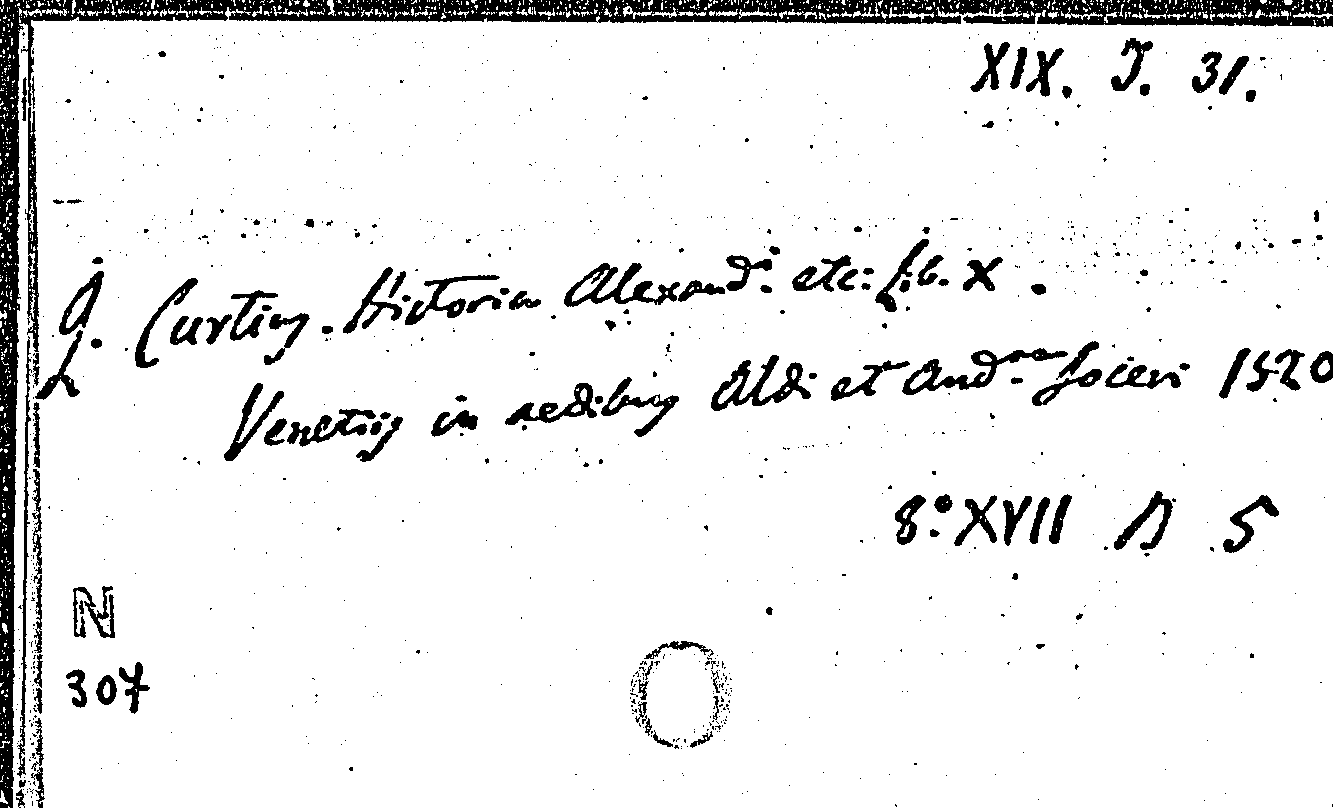 XIX. J. 31.
Q. Curtius. Historia Alexand: etc: Lib. X.
Venetijs in aedibus Aldi et Andreae Soceri 1520
8.° XVII D 5
N
307